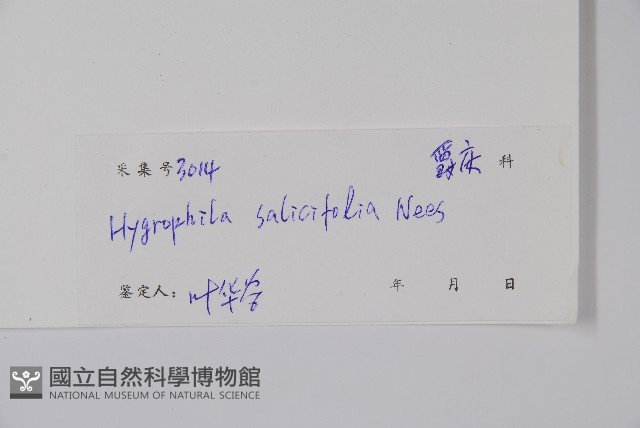 采集号 3014 爵床 科
Hygrophila salicifolia Nees
鉴定人: 叶华谷
年 月 日
國立自然科學博物館
NATIONAL MUSEUM OF NATURAL SCIENCE